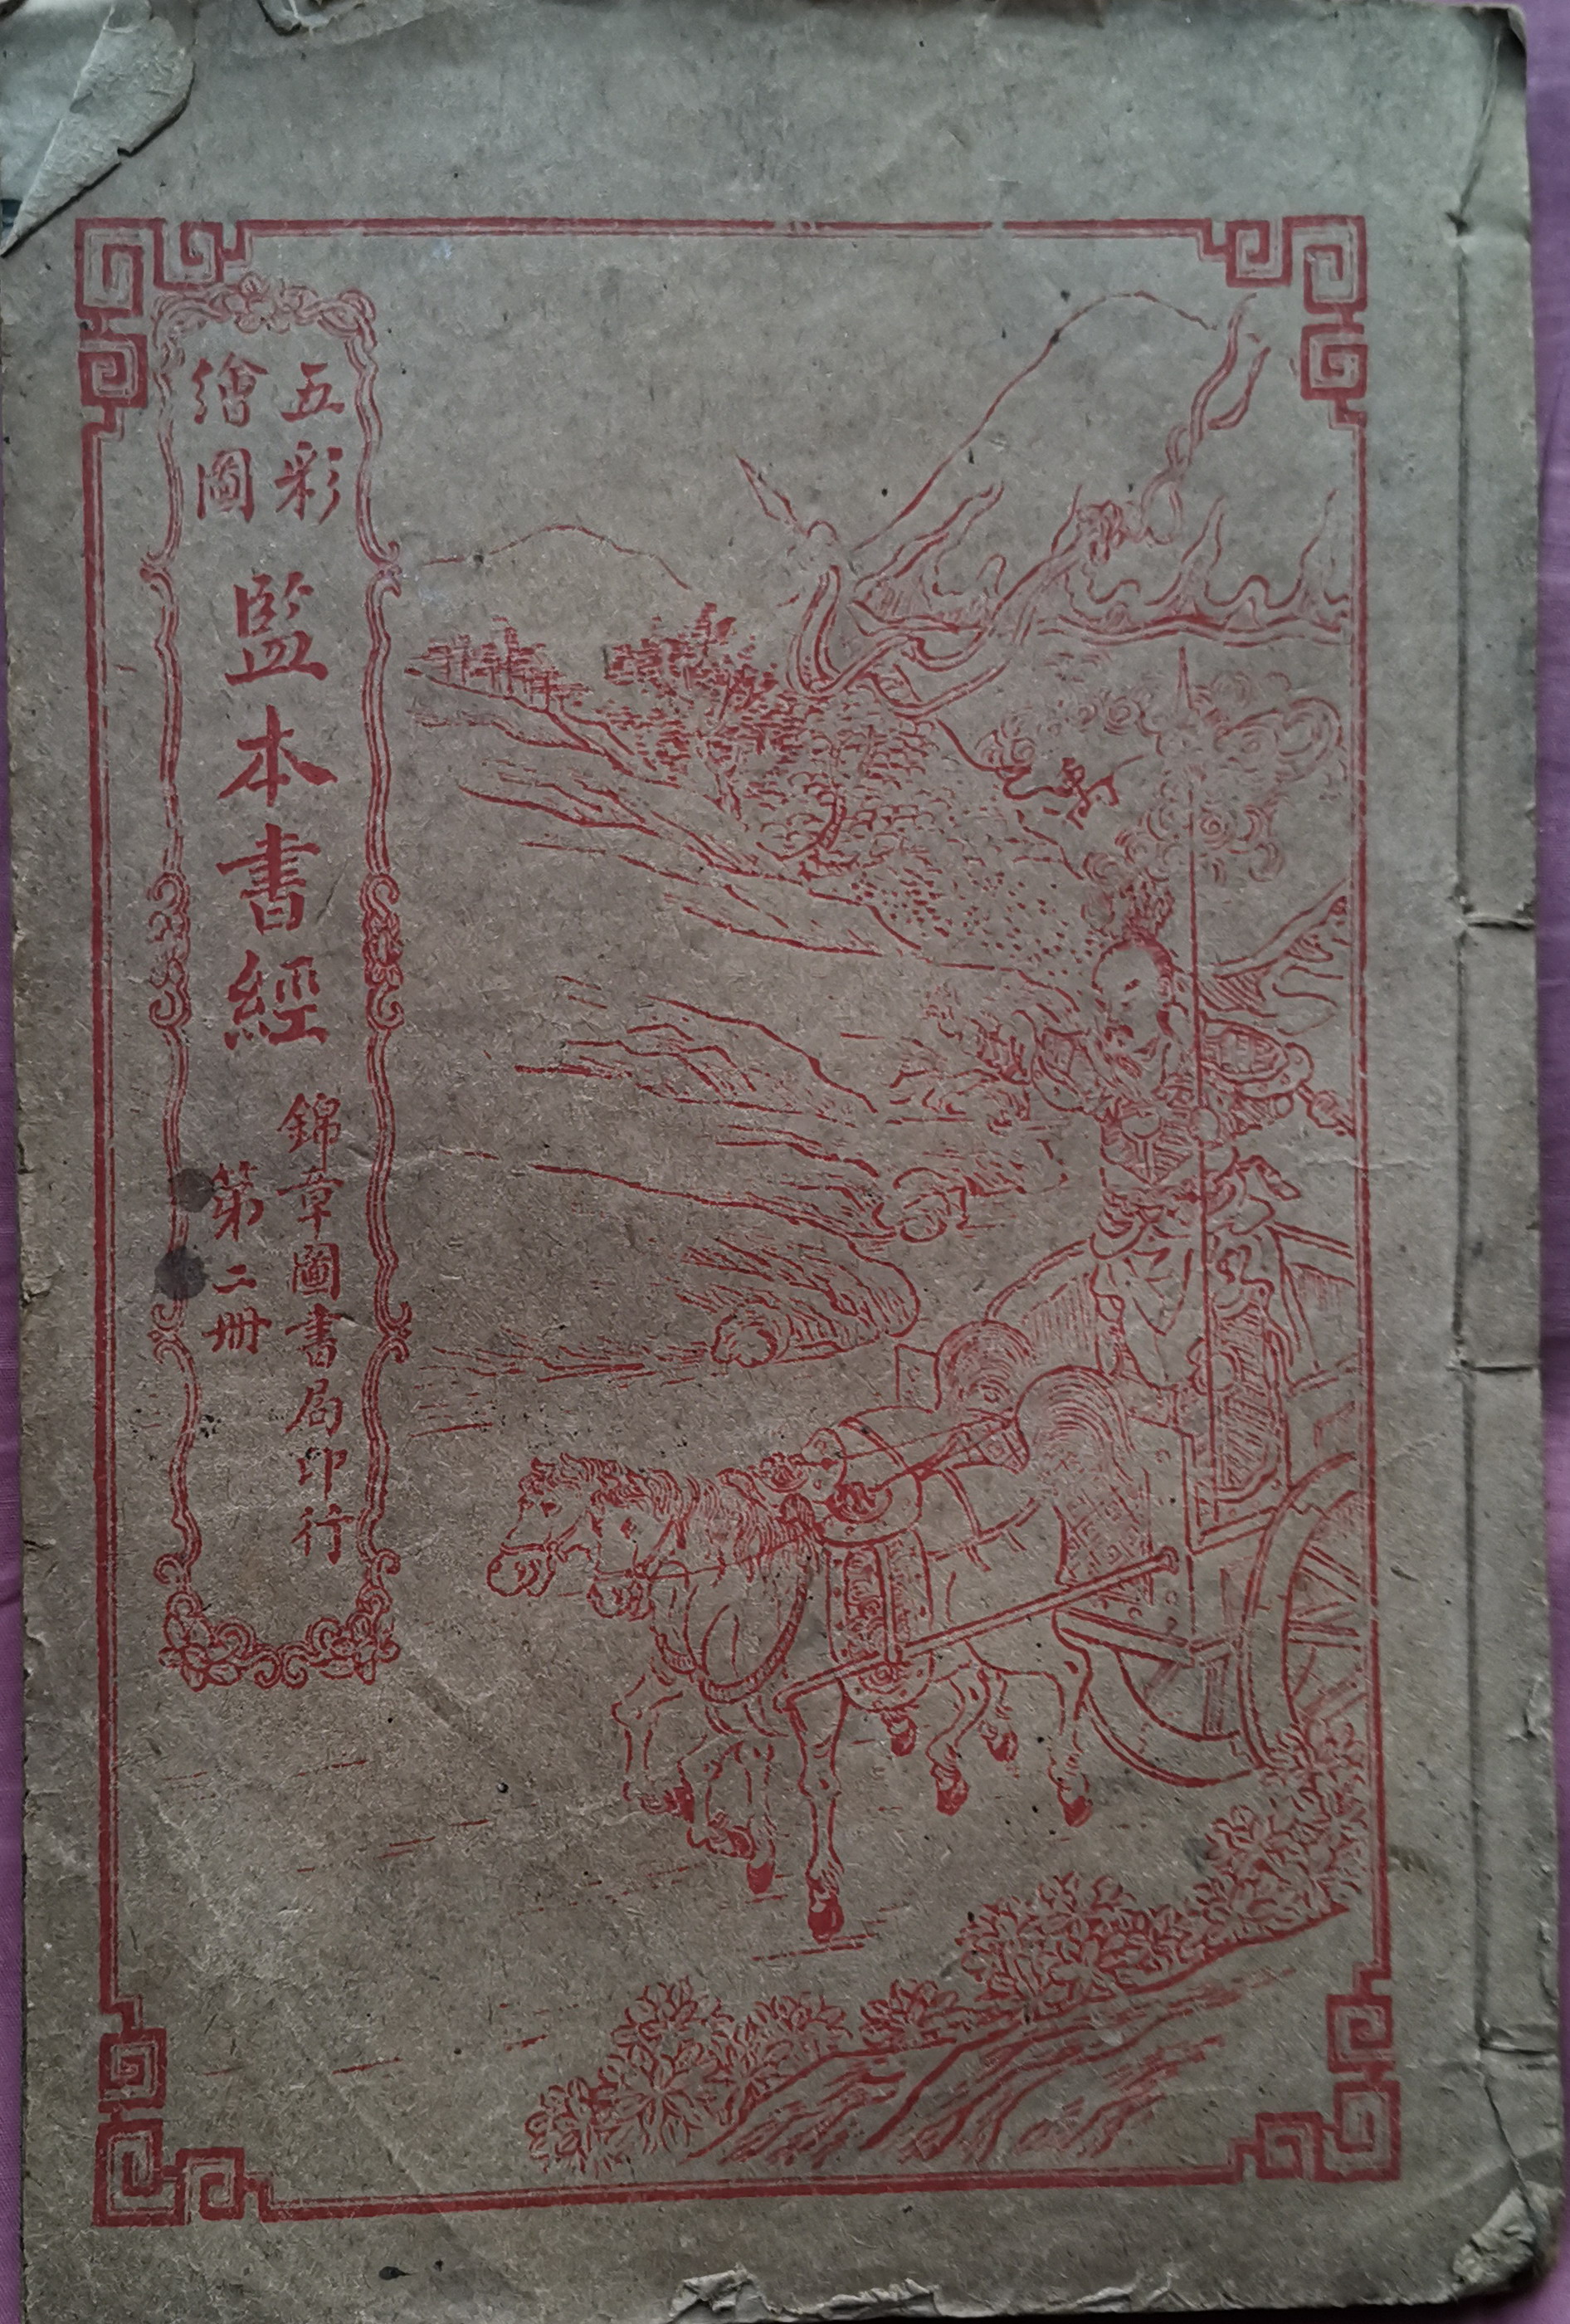 五彩
繪圖
監本書經
錦章圖書局印行
第二冊